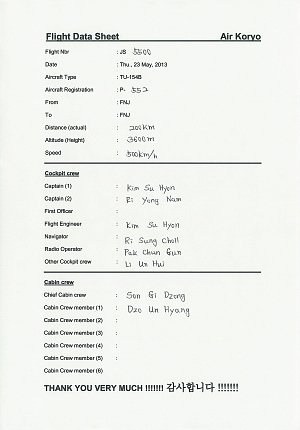 Flight Data Sheet Air Koryo
Flight Nbr : JS 5500
Date : Thu., 23 May, 2013
Aircraft Type : TU-154B
Aircraft Registration : P- 552
From : FNJ
To : FNJ
Distance (actual) : 200km
Altitude (Height) : 3600m
Speed : 500km/h
Cockpit crew
Captain (1) : Kim Su Hyon
Captain (2) : Ri Yong Nam
First Officer :
Flight Engineer : Kim Su Hyon
Navigator : Ri Sung Choll
Radio Operator : Pak Chun Gun
Other Cockpit crew : Li Un Hui
Cabin crew
Chief Cabin crew : Son Gi Dzong
Cabin Crew member (1) : Dzo Un Hyang
Cabin Crew member (2) :
Cabin Crew member (3) :
Cabin Crew member (4) :
Cabin Crew member (5) :
Cabin Crew member (6) :
THANK YOU VERY MUCH !!!!!!! 감사합니다 !!!!!!!